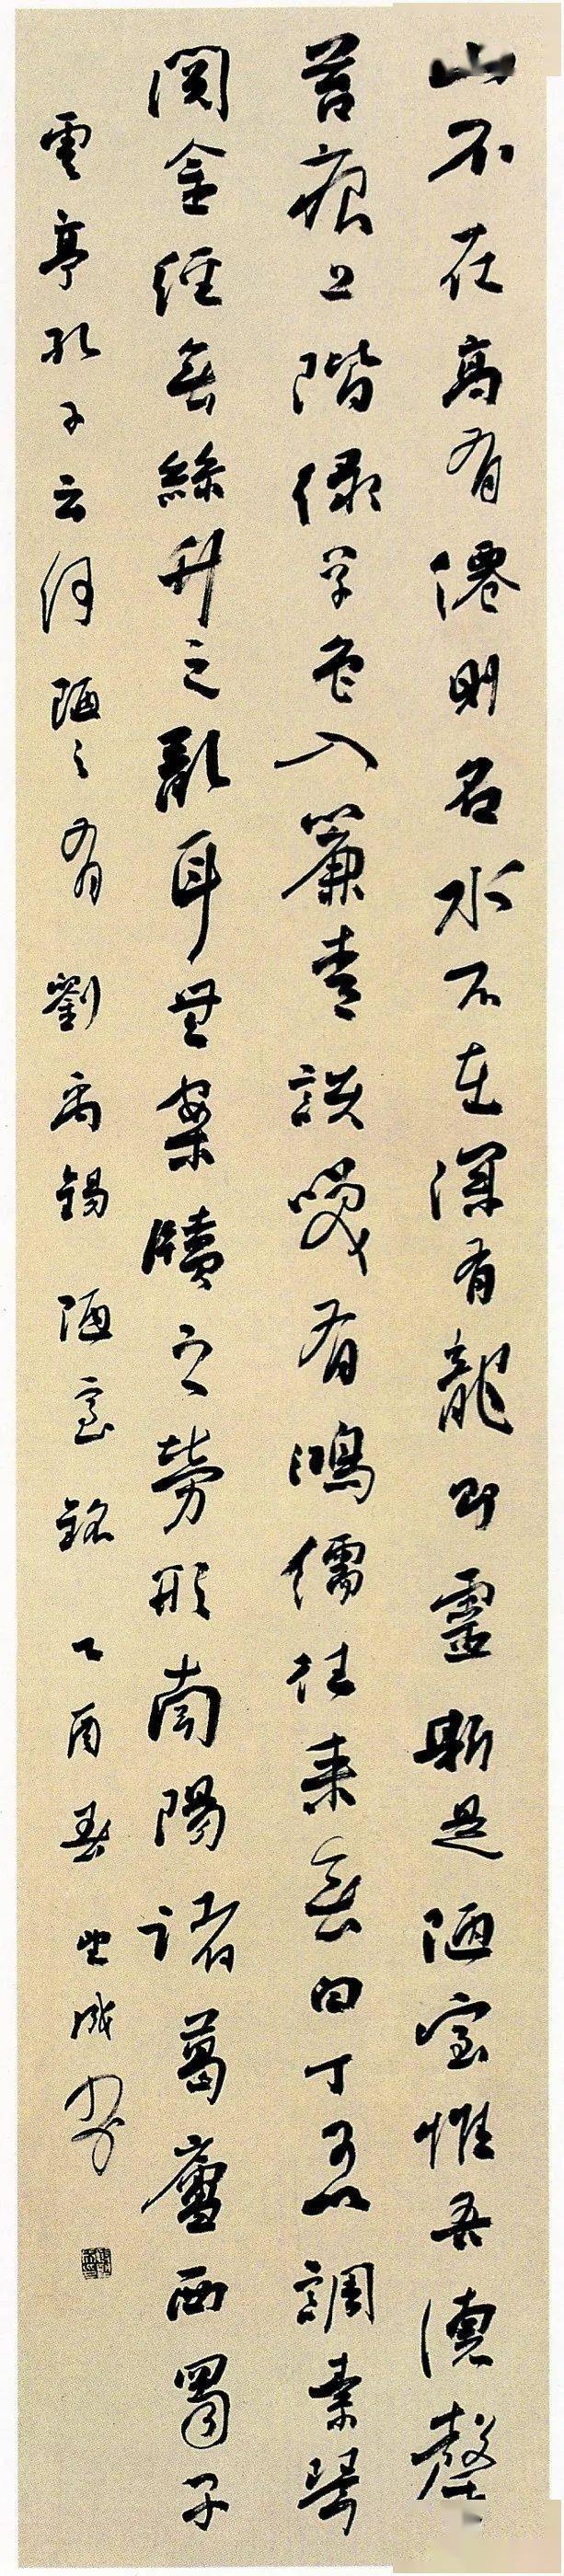 山不在高有僊則名水不在深有龍即靈斯是陋室惟吾德馨
苔痕上階綠草色入簾青談笑有鴻儒往來無白丁可以調素琴
閱金經無絲竹之亂耳無案牘之勞形南陽諸葛廬西蜀子
雲亭孔子云何陋之有 劉禹錫陋室銘 乙酉春 成書